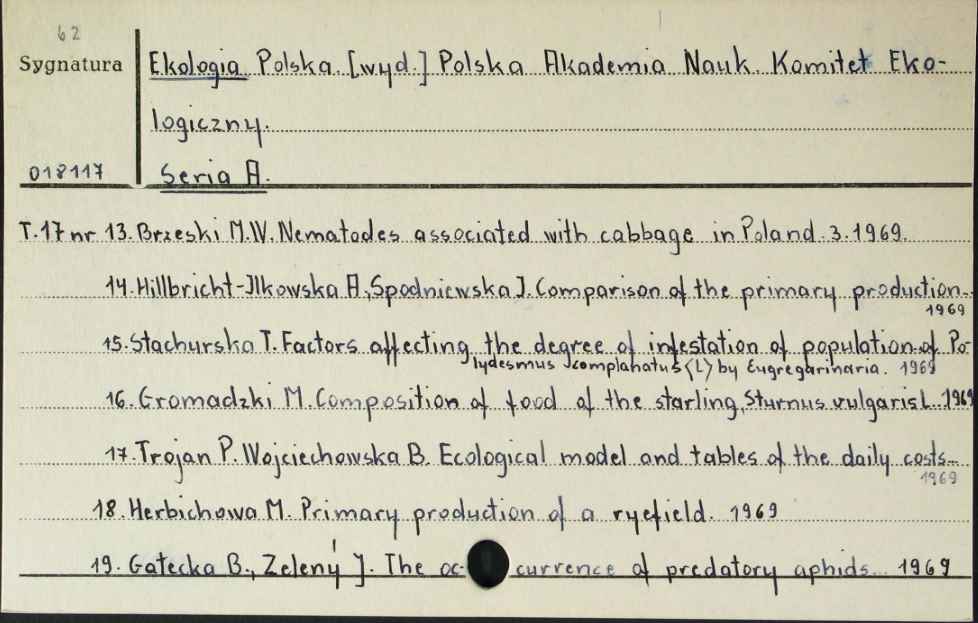 62
Sygnatura
Ekologia Polska [wyd.] Polska Akademia Nauk Komitet Eko-
logiczny.
018117
Seria A.
T.17 nr 13. Brzeski M.W. Nematodes associated with cabbage in Poland. 3. 1969.
14. Hillbricht-Jlkowska A, Spodniewska J. Comparison of the primary production...
1969
15. Stachurska T. Factors affecting the degree of infestation of population of Po-
lydesmus complanatus (L) by Eugregarinaria. 1969
16. Gromadzki M. Composition of food of the starling, Sturnus vulgaris L. 1969
17. Trojan P. Wojciechowska B. Ecological model and tables of the daily costs...
1969
18. Herbichowa M. Primary production of a ryefield. 1969
19. Gałecka B., Zelený J. The oc-currence of predatory aphids... 1969